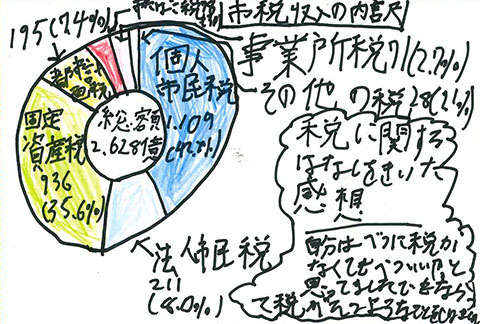 市税収入の内訳
195(7.4%)
市たばこ税
都市計画税
個人
市民税
1.109
(42.2%)
事業所税71(2.7%)
その他の税28(1.1%)
総額
2.628億
固定
資産税
936
(35.6%)
法人市民税
211
(8.0%)
税に関する
はなしをきいた
感想
自分はべつに税が
なくてもべついいと
思ってましたでも